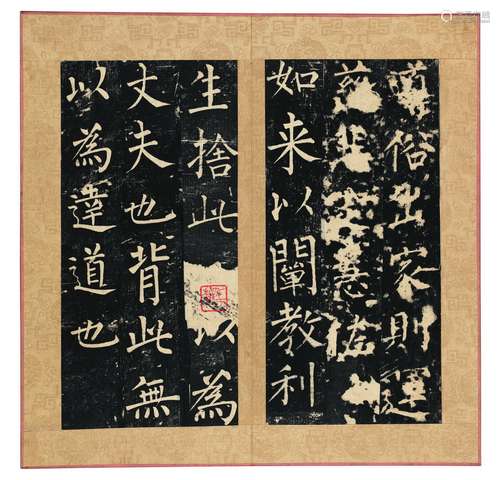 導俗出家則運
慈悲定慧佐
如来以闡教利
生捨此以為
丈夫也背此無
以為達道也